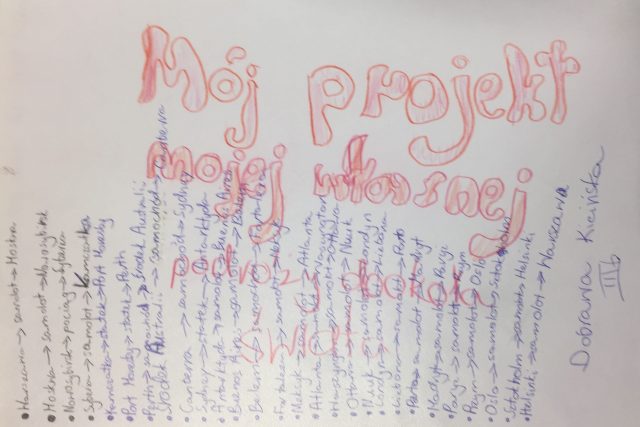 Mój projekt
mojej własnej
Dobrawa
III b
• Warszawa → samolot → Moskwa
• Moskwa → samolot → Nowosybirsk
• Nowosybirsk → pociąg → Syberia
• Syberia → samolot → Kamczatka
• Kamczatka → statek → Port Moresby
• Port Moresby → statek → Perth
• Perth → samochód → środek Australii
• Środek Australii → samochód → Canberra
• Canberra → samochód → Sydney
• Sydney → statek → Antarktyda
• Antarktyda → samolot → Buenos Aires
• Buenos Aires → samolot →
→ samolot →
→ samolot →
• Meksyk → samolot → Atlanta
• Atlanta → samolot → Waszyngton
• Waszyngton → samolot → Ottawa
• Ottawa → samolot → Nuuk
• Nuuk → samolot → Londyn
• Londyn → samolot → Lizbona
• Lizbona → samolot → Porto
• Porto → samolot → Madryt
• Madryt → samolot → Paryż
• Paryż → samolot → Rzym
• Rzym → samolot → Oslo
• Oslo → samolot → Sztokholm
• Sztokholm → samolot → Helsinki
• Helsinki → samolot → Warszawa